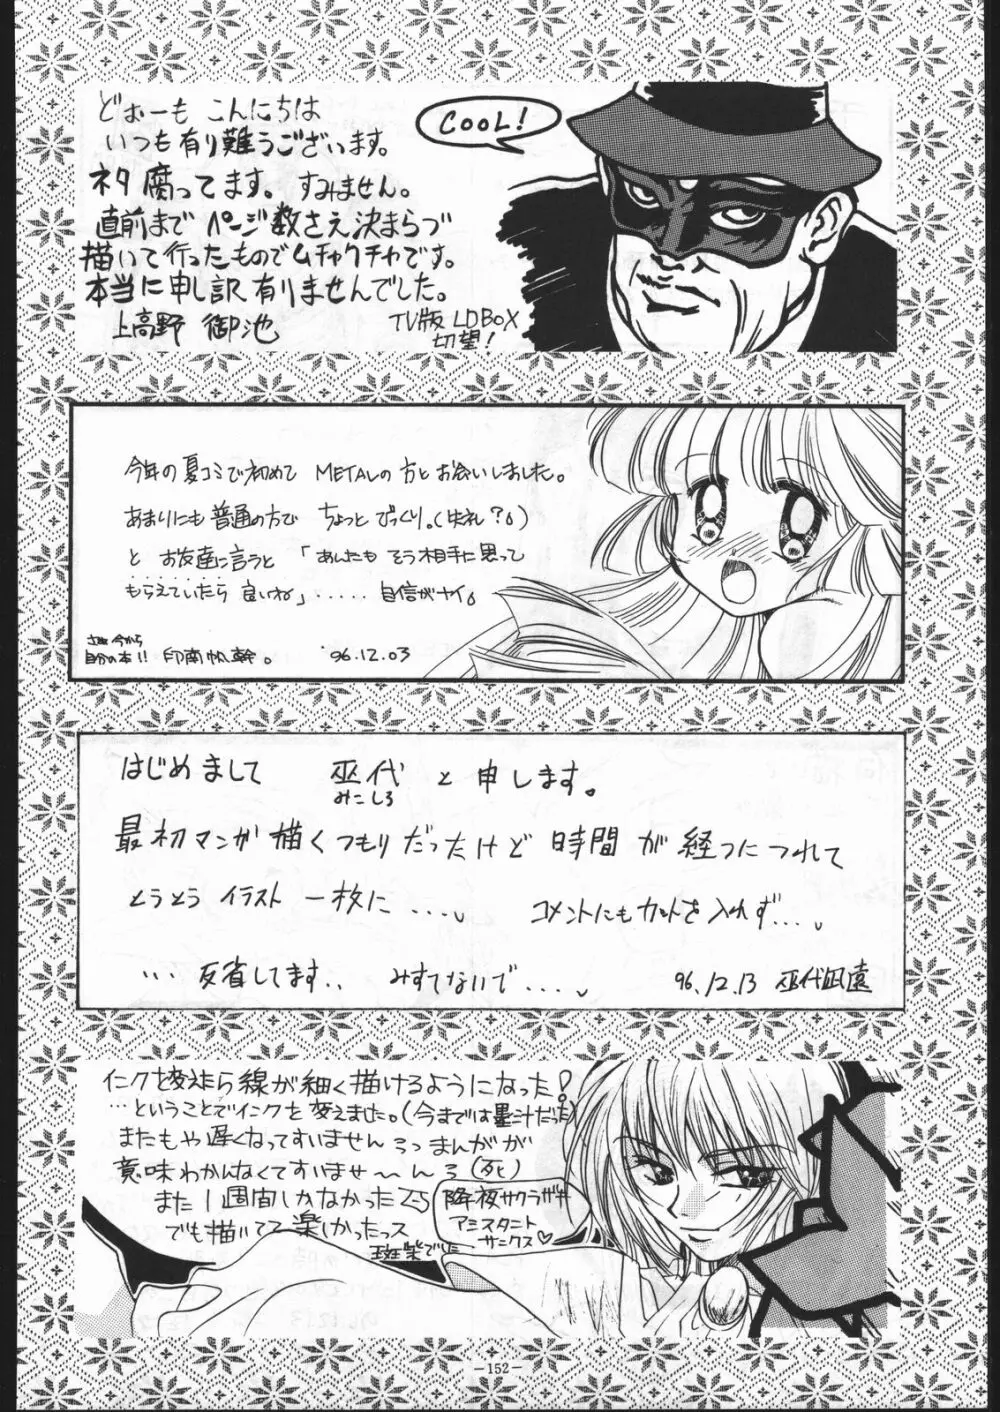 どぉーも こんにちは
いつも有り難うございます。
ネタ腐ってます。すみません。
直前まで ページ数さえ決まらづ
描いて行ったものでムチャクチャです。
本当に申し訳有りませんでした。
上高野 御池
TV版 LDBOX
切望!
COOL!
今年の夏コミで初めて METALの方とお会いしました。
あまりにも普通の方で ちょっとびっくり。(失礼?)
と お友達に言うと「あんたも そう相手に思って
もらえていたら 良いね」‥‥‥ 自信がナイ。
今から
自分の本!! 印南帆幹。 '96.12.03
はじめまして 巫代と申します。
みこしろ
最初マンガ描くつもりだったけど 時間が経つにつれて
とうとう イラスト 一枚に....
コメントにもカットを入れず...
... 反省してます.. みすてないで....
96.12.13 巫代凪遠
インクを変えたら線が細く描けるようになった!
…ということでインクを変えました。(今までは墨汁だった)
またもや遅くなってすいません まんがが
意味わかんなくてすいませ〜ん (死)
また1週間しかなかった
でも描いてて楽しかったっス
アシスタント
サンクス♡
—152—